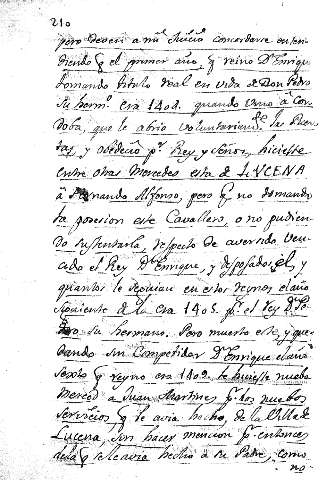 210
pero devera a mi Juicio concordarse enten-
diendo q el primer año, q reino Dn Enriq
tomando titulo real en vida de Don Pedro
su hermo era 1404. quando vino a Cor-
doba, que le abrio voluntariamte las Puer-
tas, y obedecio pr Rey y Señor, hiciesse
entre otras Mercedes esta de LUCENA
a Fernando Alfonso, pero q no tomando
la posesion este Cavallero, o no pudien-
do sustentarla, respecto de aversido ven-
cido el Rey Dn Enrique, y desposado el, y
quantos le seguian en estos reynos el año
siguiente de la era 1405. pr el rey Dn Pe-
dro su hermano. Pero muerto este, y que-
dando sin Competidor Dn Enrique el año
sexto q reyno era 1409. le hiciesse nueba
Merced a Juan Martines pr los nuebos
servicios q le avia hecho, de la Villa de
Lucena, sin hacer mencion pr entonces
de la q se le avia hecho a su Padre, como
no-